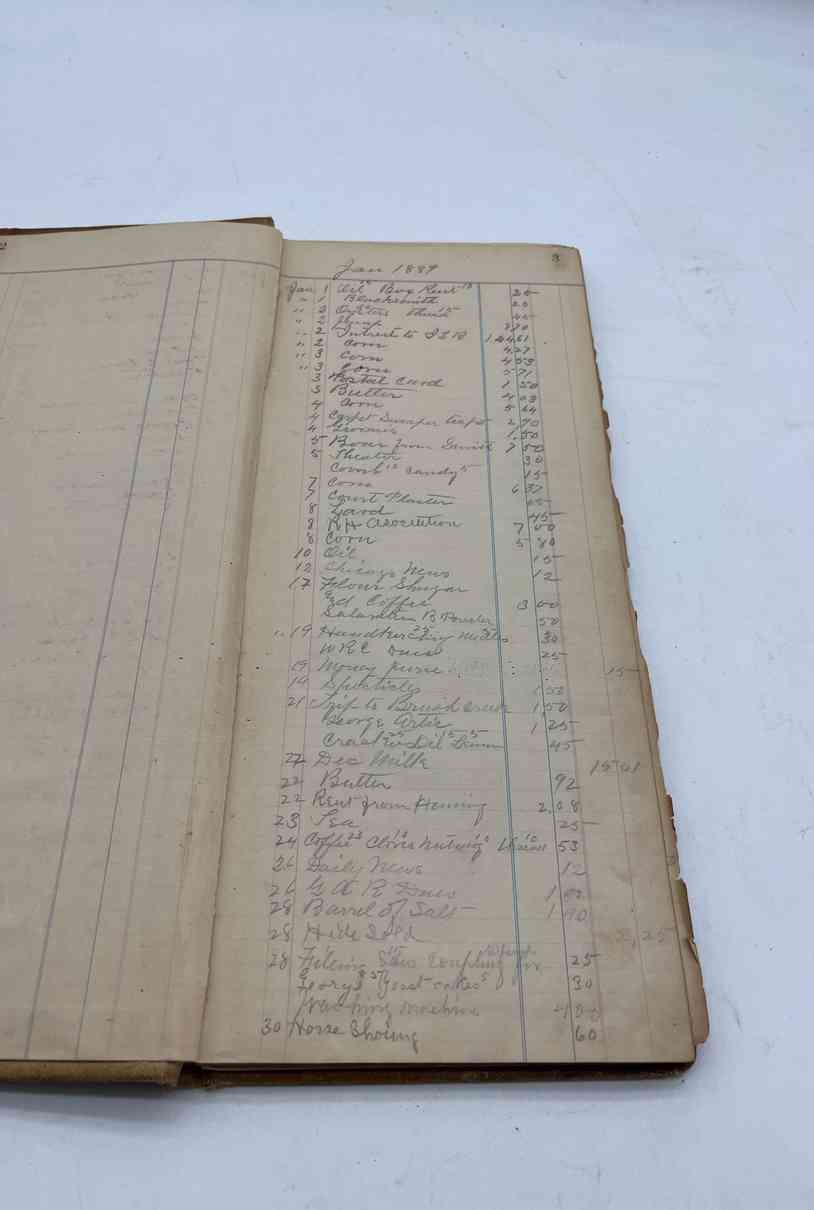 2
3
Jan 1889
Jan 1 Oil 15 Box Rent 10 25
" 1 Blacksmith 25
" 2 Oysters 45
" 2
" 2 Intrest to 144 61
" 2 Corn 4 27
" 3 Corn 4 53
" 3 Corn 5 71
3 Postal Card 1 50
3 Butter 4 03
4 Corn 5 64
4 Carpet Sweeper 2 90
4 Groceries 1.50
5 Boxes from 7 50
5 Theater 30
Comb 10 Candy 5 15
7 Corn 6 37
7 Court Plaster
8 Lard 45
8 Asociation 7 00
8 Corn 5 80
10 Oil 15
12 Chicago News 12
17 Flour Shugar
and Coffee 3 00
B. Powder 50
" 19 25 30
W R C Dues 25
19 Money purse 15
19 Specticles 1 50
21 Trip to 1 50
George 1,25
25 Oil 15 5 45
22 Dec Milk 15 01
22 Butter 92
22 Rent from 2.08
23 Tea 25
24 Coffee 25 10 10 53
26 Daily News 12
26 G A R Dues 1
28 Barrel of Salt 1 90
28 Hide Sold 2,25
28 15 Coupling 25
25 Yeast cakes 5 30
Washing machine
30 Horse Shoing 60